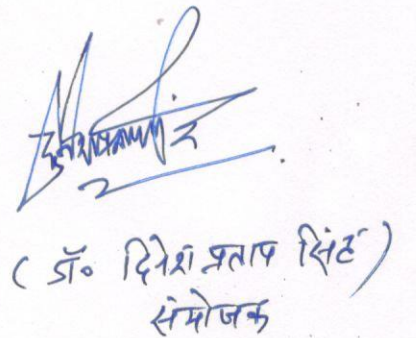 (डॉ० दिनेश प्रताप सिंह)
संयोजक